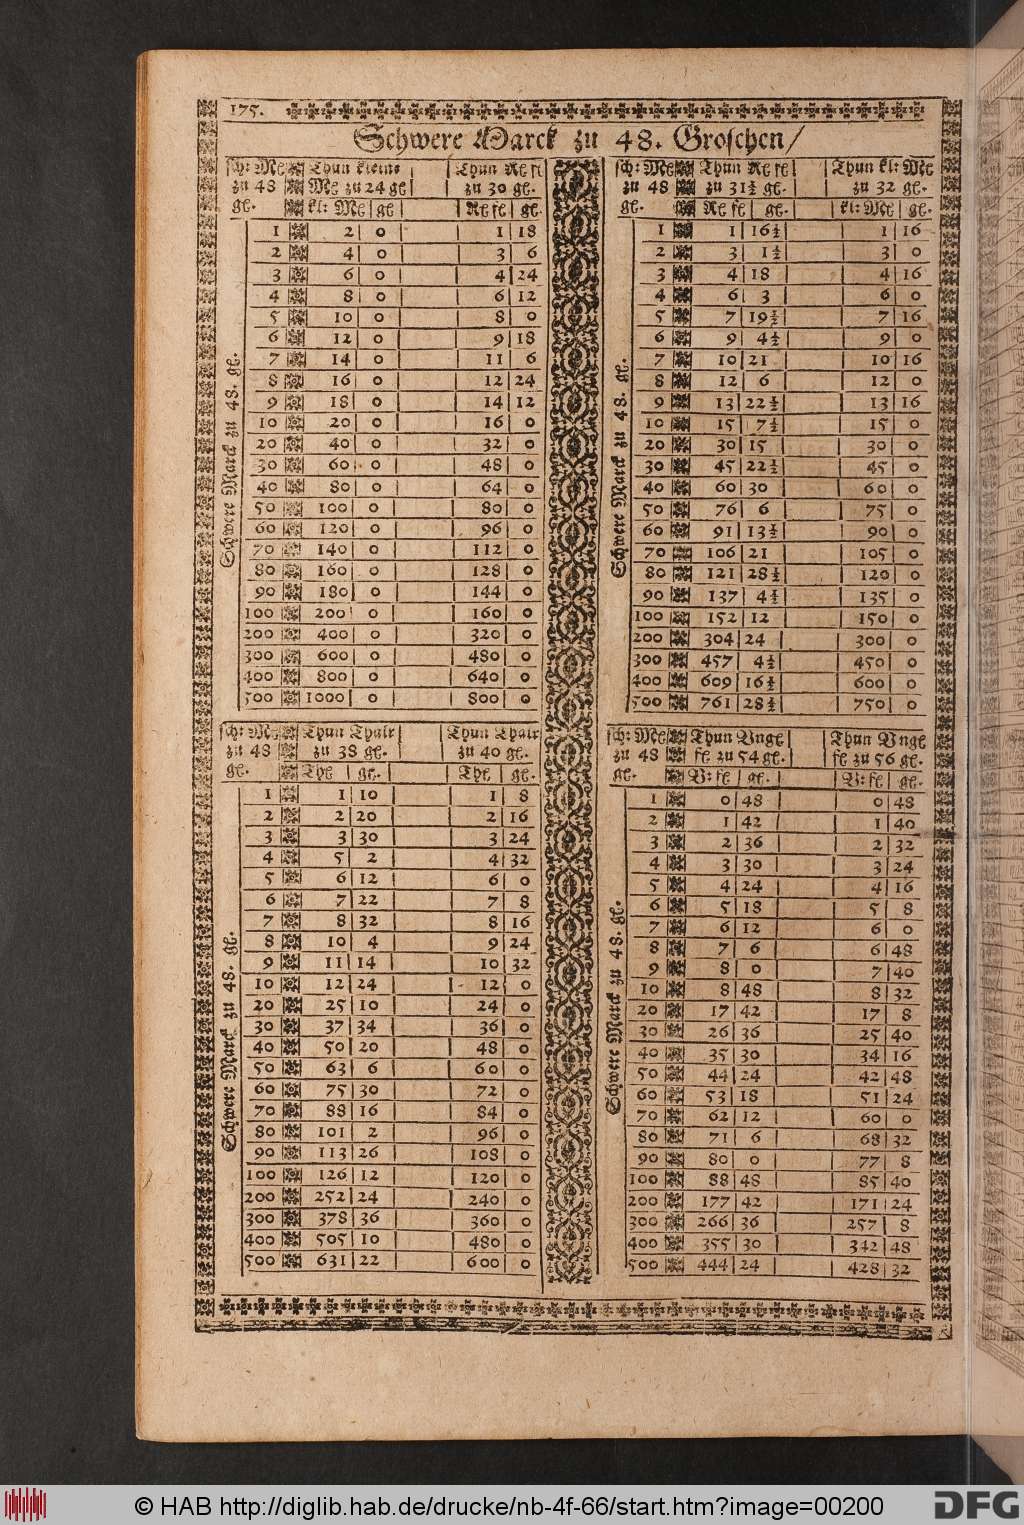 175.
Schwere Marck zu 48. Groschen/
sch: Mℓ Thun kleine Thun Rℓ fl
zu 48 Mℓ zu 24 gℓ zu 30 gℓ.
gℓ. kl: Mℓ gℓ Rℓ fl gℓ.
Schwere Marck zu 48. gℓ.
1 2 0 1 18
2 4 0 3 6
3 6 0 4 24
4 8 0 6 12
5 10 0 8 0
6 12 0 9 18
7 14 0 11 6
8 16 0 12 24
9 18 0 14 12
10 20 0 16 0
20 40 0 32 0
30 60 0 48 0
40 80 0 64 0
50 100 0 80 0
60 120 0 96 0
70 140 0 112 0
80 160 0 128 0
90 180 0 144 0
100 200 0 160 0
200 400 0 320 0
300 600 0 480 0
400 800 0 640 0
500 1000 0 800 0
sch: Mℓ Thun Rℓ fl Thun kl: Mℓ
zu 48 zu 31½ gℓ. zu 32 gℓ.
gℓ. Rℓ fl gℓ. kl: Mℓ gℓ.
Schwere Marck zu 48. gℓ.
1 1 16½ 1 16
2 3 1½ 3 0
3 4 18 4 16
4 6 3 6 0
5 7 19½ 7 16
6 9 4½ 9 0
7 10 21 10 16
8 12 6 12 0
9 13 22½ 13 16
10 15 7½ 15 0
20 30 15 30 0
30 45 22½ 45 0
40 60 30 60 0
50 76 6 75 0
60 91 13½ 90 0
70 106 21 105 0
80 121 28½ 120 0
90 137 4½ 135 0
100 152 12 150 0
200 304 24 300 0
300 457 4½ 450 0
400 609 16½ 600 0
500 761 28½ 750 0
sch: Mℓ Thun Thalr Thun Thalr
zu 48 zu 38 gℓ. zu 40 gℓ.
gℓ. Thℓ gℓ. Thℓ gℓ.
Schwere Marck zu 48. gℓ.
1 1 10 1 8
2 2 20 2 16
3 3 30 3 24
4 5 2 4 32
5 6 12 6 0
6 7 22 7 8
7 8 32 8 16
8 10 4 9 24
9 11 14 10 32
10 12 24 12 0
20 25 10 24 0
30 37 34 36 0
40 50 20 48 0
50 63 6 60 0
60 75 30 72 0
70 88 16 84 0
80 101 2 96 0
90 113 26 108 0
100 126 12 120 0
200 252 24 240 0
300 378 36 360 0
400 505 10 480 0
500 631 22 600 0
sch: Mℓ Thun Vngℓ Thun Vngℓ
zu 48 fl zu 54 gℓ. fl zu 56 gℓ.
gℓ. V: fl gℓ. V: fl gℓ.
Schwere Marck zu 48. gℓ.
1 0 48 0 48
2 1 42 1 40
3 2 36 2 32
4 3 30 3 24
5 4 24 4 16
6 5 18 5 8
7 6 12 6 0
8 7 6 6 48
9 8 0 7 40
10 8 48 8 32
20 17 42 17 8
30 26 36 25 40
40 35 30 34 16
50 44 24 42 48
60 53 18 51 24
70 62 12 60 0
80 71 6 68 32
90 80 0 77 8
100 88 48 85 40
200 177 42 171 24
300 266 36 257 8
400 355 30 342 48
500 444 24 428 32
© HAB http://diglib.hab.de/drucke/nb-4f-66/start.htm?image=00200
DFG